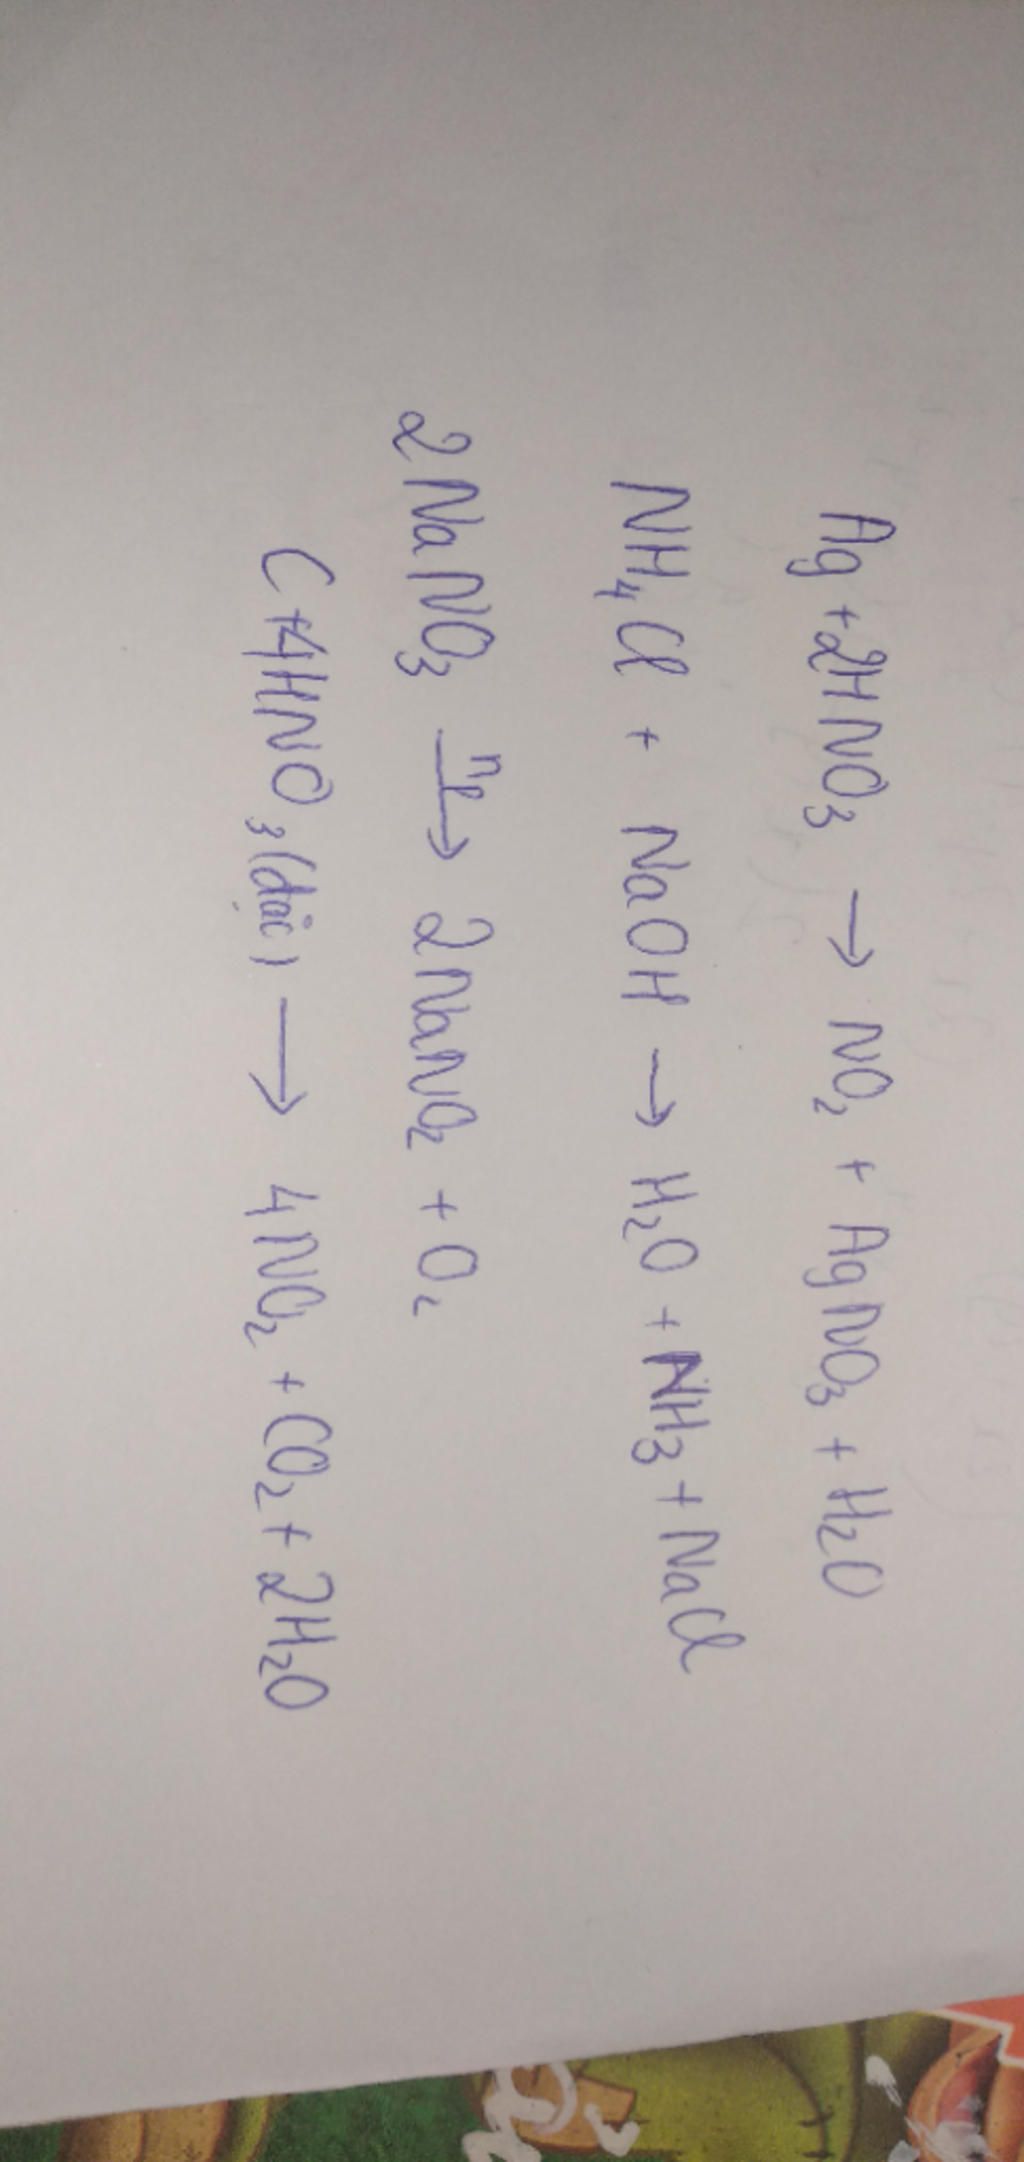 Ag + 2HNO₃ → NO₂ + AgNO₃ + H₂O
NH₄Cl + NaOH → H₂O + NH₃ + NaCl
2NaNO₃ →
2NaNO₂ + O₂
C + 4HNO₃(đặc) → 4NO₂ + CO₂ + 2H₂O